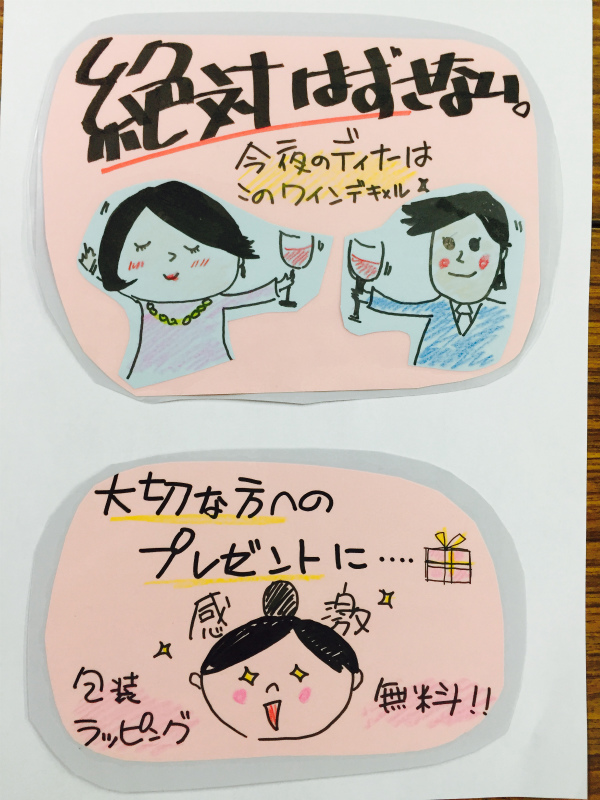 絶対はずせない。
今夜のディナーは
このワインデキメル
大切な方への
プレゼントに····
感激
包装
ラッピング
無料!!